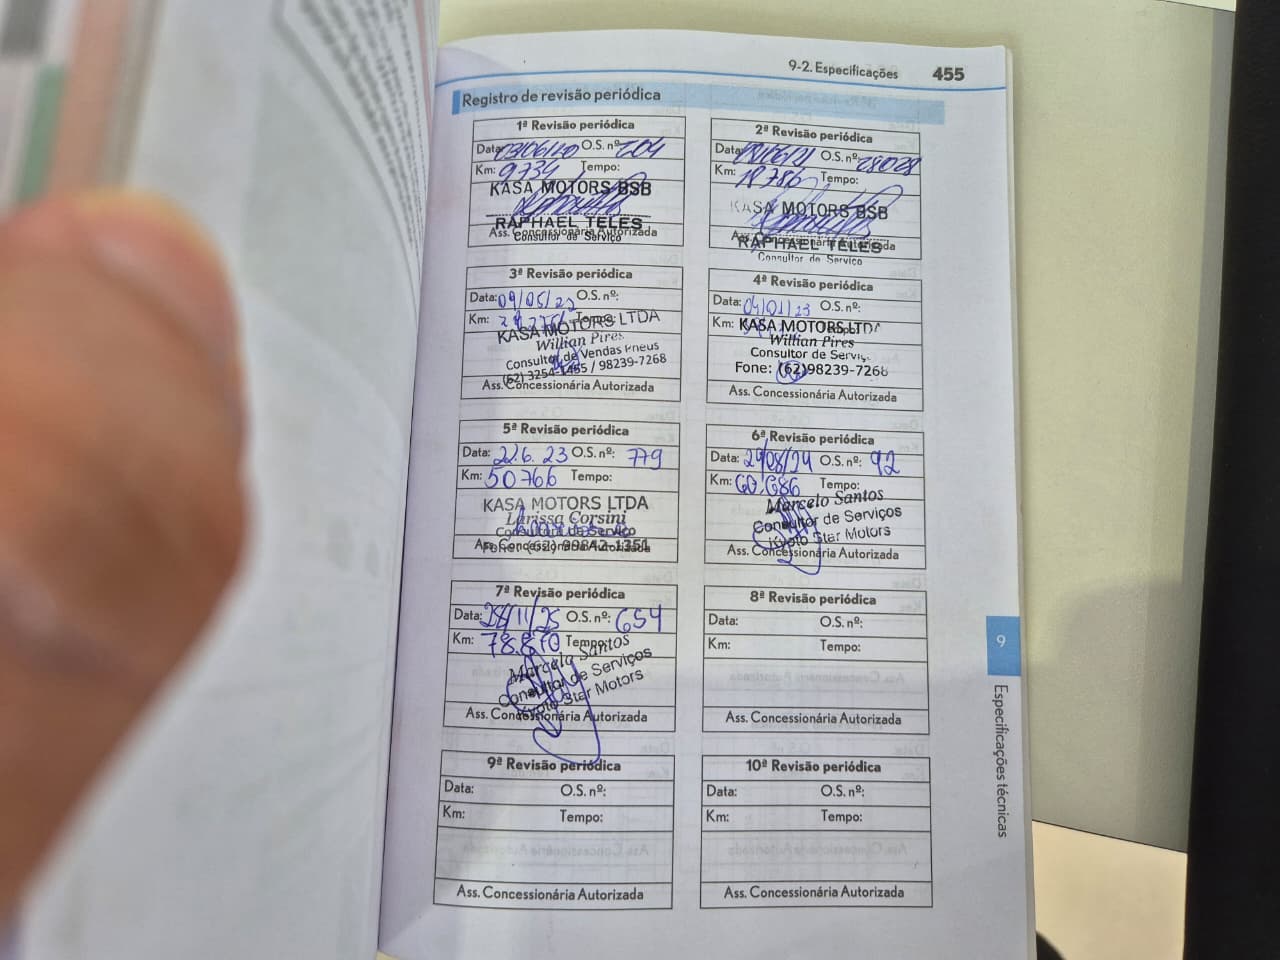 9-2. Especificações 455
Registro de revisão periódica
1ª Revisão periódica
Data: 03/06/20 O.S. nº: 204
Km: 9734 Tempo:
KASA MOTORS BSB
RAPHAEL TELES
Consultor de Serviço
Ass. Concessionária Autorizada
2ª Revisão periódica
Data: O.S. nº: 28028
Km: 18786 Tempo:
KASA MOTORS BSB
RAPHAEL TELES
Consultor de Serviço
3ª Revisão periódica
Data: 09/05/22 O.S. nº:
Km: Tempo:
KASA MOTORS LTDA
Willian Pires
Consultor de Vendas Pneus
(62) 3254-1455 / 98239-7268
Ass. Concessionária Autorizada
4ª Revisão periódica
Data: 04/01/23 O.S. nº:
Km:
KASA MOTORS LTDA
Willian Pires
Consultor de Serviç.
Fone: (62)98239-7268
Ass. Concessionária Autorizada
5ª Revisão periódica
Data: 22.6.23 O.S. nº: 779
Km: 50766 Tempo:
KASA MOTORS LTDA
Larissa Corsini
Consultora de Serviço
Fone: (62) 99842-1351
Ass. Concessionária Autorizada
6ª Revisão periódica
Data: O.S. nº: 92
Km: 60.686 Tempo:
Marcelo Santos
Consultor de Serviços
Kyoto Star Motors
Ass. Concessionária Autorizada
7ª Revisão periódica
Data: O.S. nº: 654
Km: 78.870 Tempo:
Marcelo Santos
Consultor de Serviços
Kyoto Star Motors
Ass. Concessionária Autorizada
8ª Revisão periódica
Data: O.S. nº:
Km: Tempo:
Ass. Concessionária Autorizada
9ª Revisão periódica
Data: O.S. nº:
Km: Tempo:
Ass. Concessionária Autorizada
10ª Revisão periódica
Data: O.S. nº:
Km: Tempo:
Ass. Concessionária Autorizada
9
Especificações técnicas